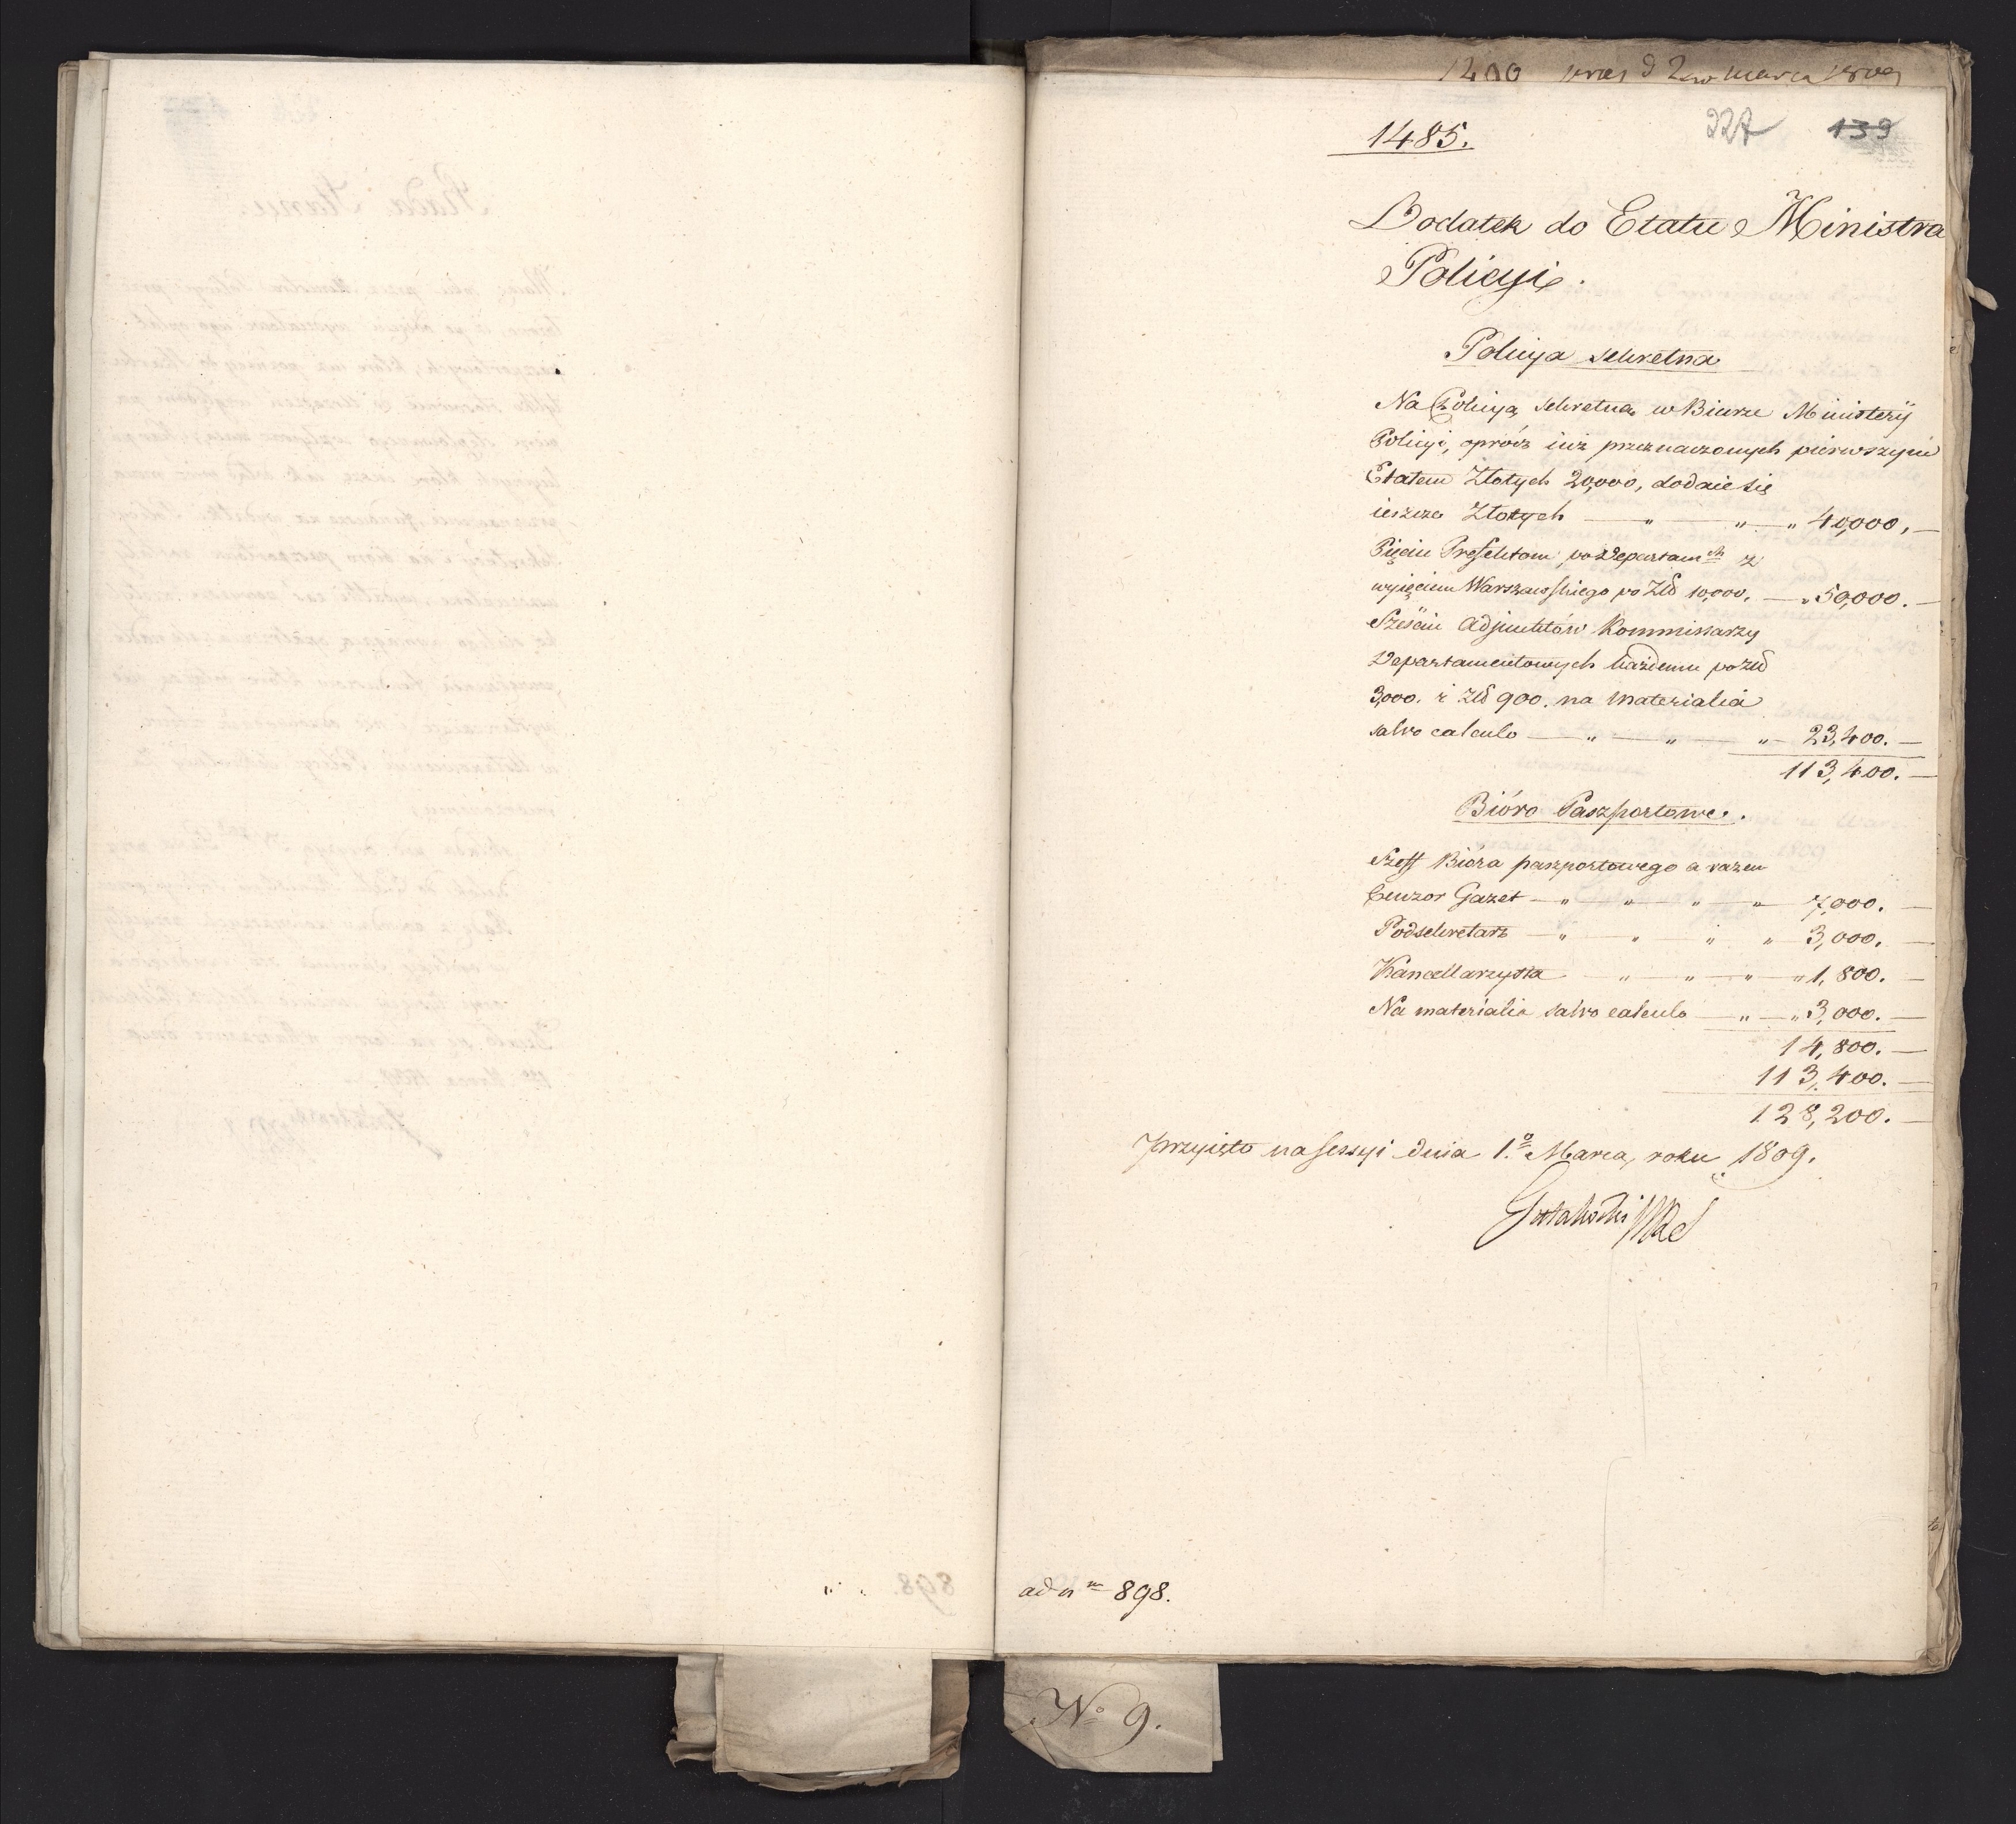 1485.
327 139
Dodatek do Etatu Ministra
Policyi.
Policya sekretna
Na Policyą sekretną w Biurze Ministeryi
Policyi, oprócz iuż przeznaczonych pierwszym
Etatem Złotych 20,000, dodaie się
ieszcze Złotych — " — " — " 40,000, —
Pięciu Prefektom po Departam ch z
wyięciem Warszawskiego po Złł 10,000. — " 50,000. —
Sześciu Adjunktów Kommissarzy
Departamentowych każdemu po złł
3,000. i złł 900. na materialia
salvo calculo — " — " — " — 23,400. —
113,400. —
Bióro Paszportowe.
Szeff Bióra paszportowego a razem
Cenzor Gazet — " — " — " — " — 7,000. —
Podsekretarz — " — " — " — " — 3,000. —
Kancellarzysta — " — " — " — " 1,800. —
Na materialia salvo calculo — " — " 3,000. —
14,800. —
113,400. —
128,200. —
Przyięto na sessyi dnia 1.o Marca, roku 1809.
ad n m 898.
No 9.